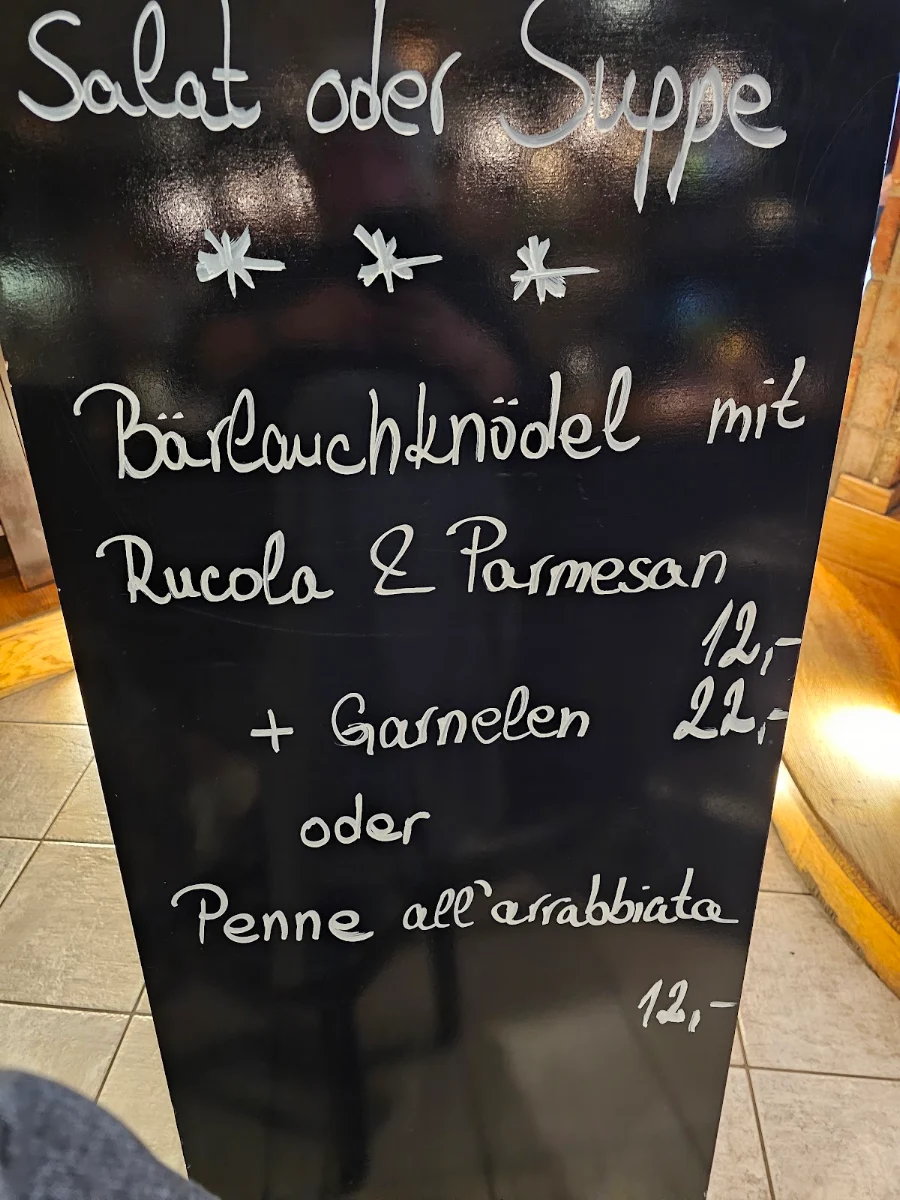 Salat oder Suppe
* * *
Bärlauchknödel mit
Rucola & Parmesan
12,-
+ Garnelen 22,-
oder
Penne all'arrabbiata
12,-